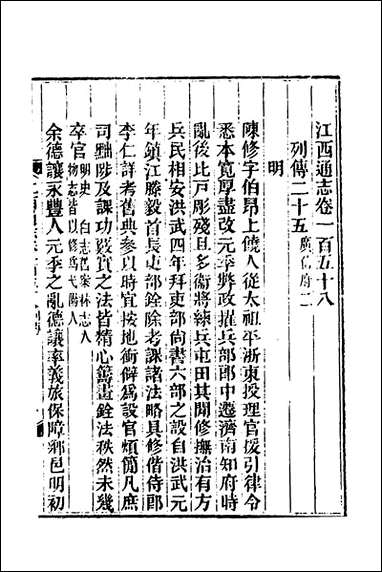 江西通志卷一百五十八
列傳二十五 廣信府二
明
陳修字伯昂上饒人從太祖平浙東授理官援引律令
悉本寬厚盡改元季弊政擢兵部郎中遷濟南知府時
亂後比戶彫殘且多衞將練兵屯田其間修撫治有方
兵民相安洪武四年拜吏部尚書六部之設自洪武元
年鎮江滕毅首長吏部銓除考課諸法略具修偕侍郎
李仁詳考舊典參以時宜按地衝僻為設官煩簡凡庶
司黜陟及課功覈實之法皆精心籌畫銓法秩然未幾
卒官
余德讓永豐人元季之亂德讓率義旅保障鄉邑明初